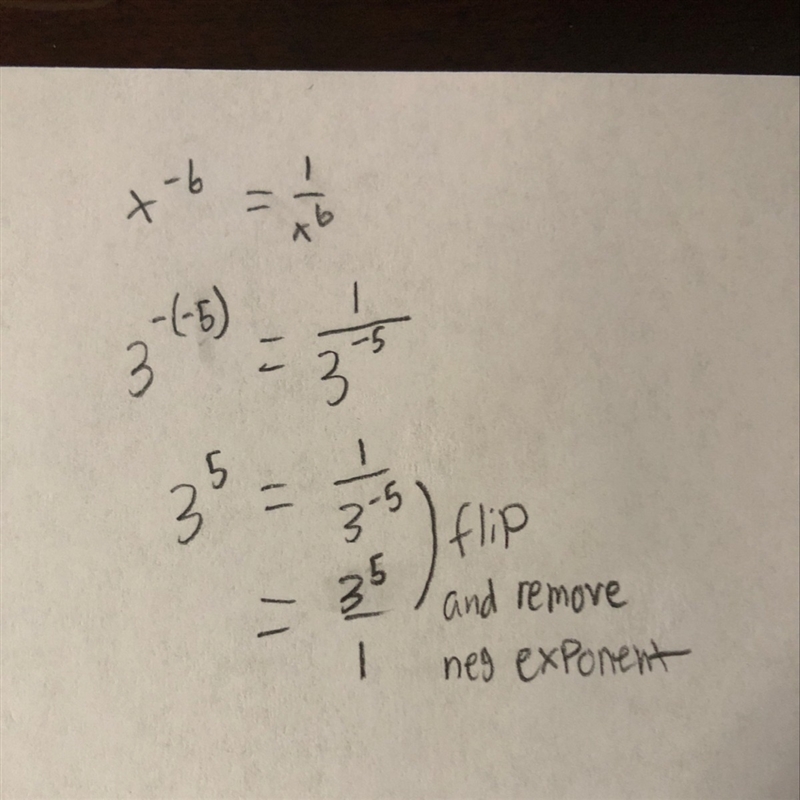 x^-6 = 1/x^6
3^-(-5) = 1/3^-5
3^5 = 1/3^-5
= 3^5/1
flip
and remove
neg exponent